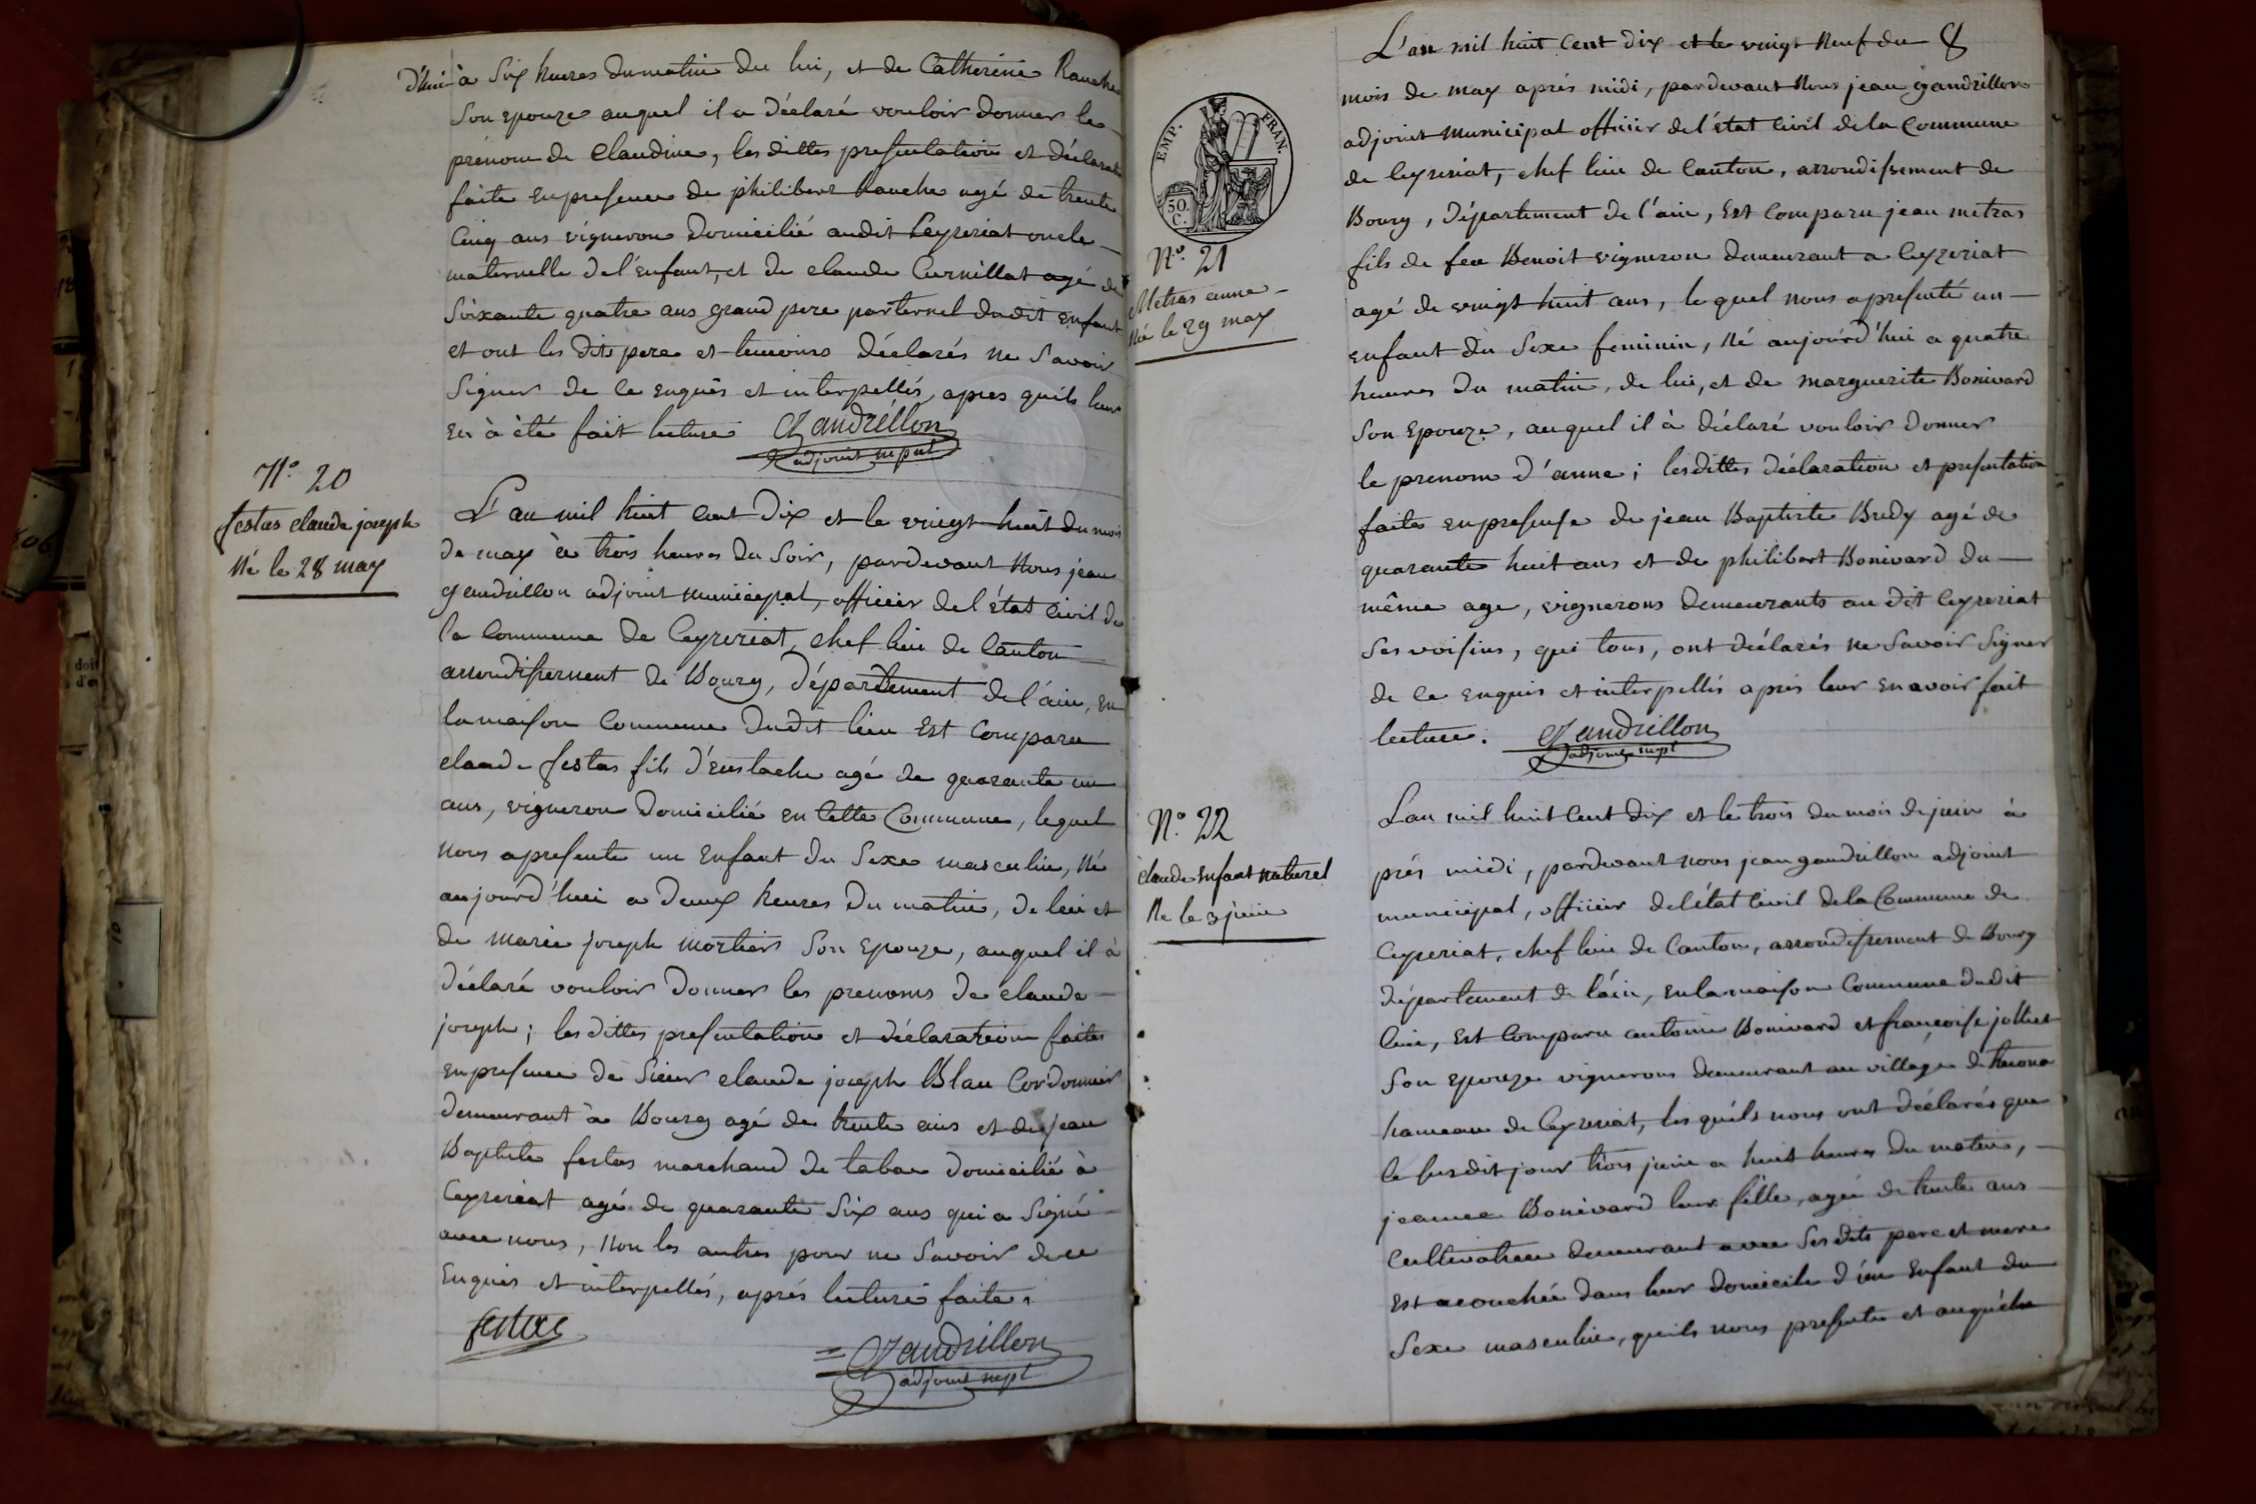 d'hui à Six heures du matin de lui, et de Catherine Rauche
son epouze auquel il a déclaré vouloir donner le
prénom de claudine, les dittes presentation et déclaration
faite en presence de philibert Rauche agé de trente
cinq ans vigneron domicilié audit Ceyzeriat oncle
maternelle de l'enfant, et de claude Curnillat agé de
soixante quatre ans grand pere parternel dudit enfant
et ont les dits pere et temoins déclarés ne savoir
signer de ce enquis et interpellés, apres qu'ils leur
en à été fait lecture Gandrillon
adjoint mpal
N.° 20
festas claude joseph
Né le 28 may
L'an mil huit cent dix et le vingt huit du mois
de may à trois heures du soir, pardevant Nous jean
gandrillon adjoint municipal, officier de l'état civil de
la commune de Ceyzeriat, chef lieu de Canton
arrondissement de Bourg, département de l'ain, en
la maison commune dudit lieu est comparu
claude festas fils d'eustache agé de quarante un
ans, vigneron domicilié en cette Commune, lequel
nous a presenté un enfant du sexe masculin, né
aujourd'hui a deux heures du matin, de lui et
de marie joseph mortier son epouze, auquel il à
déclaré vouloir donner les prenoms de claude
joseph; les dittes presentation et déclaration faites
en presence de sieur claude joseph Blau Cordonnier
demeurant à Bourg agé de trente ans et de jean
Baptiste festas marchand de tabac domicilié à
Ceyzeriat agé de quarante six ans qui a signé
avec nous, non les autres pour ne savoir de ce
enquis et interpellés, après lecture faite.
festas
Gandrillon
adjoint mpl
EMP. FRAN.
50.
C.
N.° 21
Metras anne
Né le 29 may
L'an mil huit cent dix et le vingt neuf du
mois de may après midi, pardevant Nous jean gandrillon
adjoint municipal officier de l'état civil de la commune
de Ceyzeriat, chef lieu de canton, arrondissement de
Bourg, département de l'ain, est comparu jean metras
fils de feu Benoit vigneron demeurant a Ceyzeriat
agé de vingt huit ans, lequel nous a presenté un
enfant du sexe feminin, né aujourd'hui a quatre
heures du matin, de lui, et de marguerite Bonivard
son epouze, auquel il à déclaré vouloir donner
le prenom d'anne; les dittes déclaration et presentation
faites en presence de jean Baptiste Budy agé de
quarante huit ans et de philibert Bonivard du
même age, vignerons demeurants au dit Ceyzeriat
ses voisins, qui tous, ont déclarés ne savoir signer
de ce enquis et interpellés après leur en avoir fait
lecture. Gandrillon
adjoint mpl
N.° 22
claude enfant naturel
Né le 3 juin
L'an mil huit cent dix et le trois du mois de juin à
près midi, pardevant nous jean gandrillon adjoint
municipal, officier de l'état civil de la Commune de
Ceyzeriat, chef lieu de Canton, arrondissement de Bourg
département de l'ain, en la maison Commune dudit
lieu, est comparu antoine Bonivard et francoise jolliet
son epouze vignerons demeurant au village de
hameau de Ceyzeriat, les quels nous ont déclarés que
le susdit jour trois juin a huit heures du matin,
jeanne Bonivard leur fille, agée de trente ans
cultivatrice demeurant avec ses dits pere et mere
est acouchée dans leur domicile d'un enfant du
sexe masculin, qu'ils nous presente et auquel